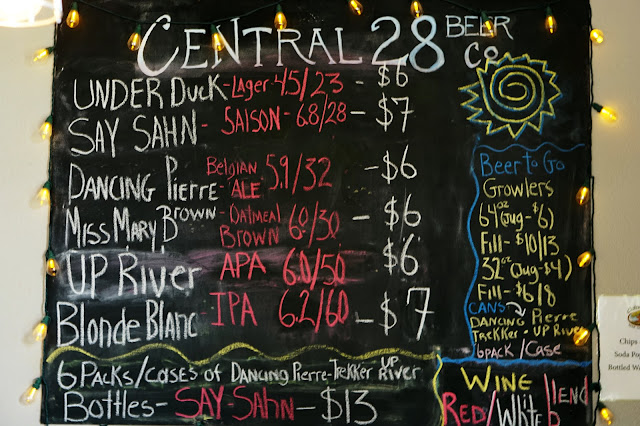 CENTRAL 28 BEER Co
UNDER DUCK - Lager 4.5/23 - $6
SAY SAHN - SAISON - 6.8/28 - $7
DANCING PIERRE - Belgian ALE 5.9/32 - $6
MISS MARY BROWN - OATMEAL BROWN 6.0/30 - $6
UP RIVER APA 6.0/50 $6
Blonde Blanc - IPA 6.2/60 - $7
6 PACKS/CASES OF DANCING PIERRE-TREKKER UP RIVER
BOTTLES - SAY SAHN - $13
Beer to Go
Growlers
64oz (Jug-$6)
Fill - $10/13
32oz (Jug-$4)
Fill - $6/8
CANS
DANCING Pierre
TREKKER - UP RIVER
6 PACK / CASE
WINE
RED/White/
Chips
Soda Po
Bottled Wa